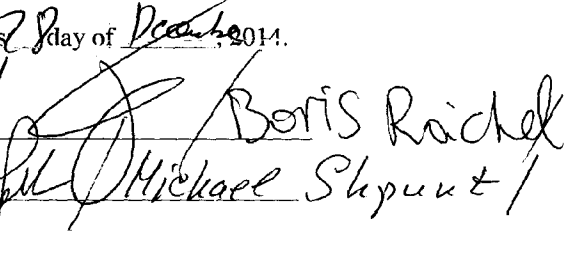 28 day of December, 2014.
Boris Raichel
Michael Shpunt